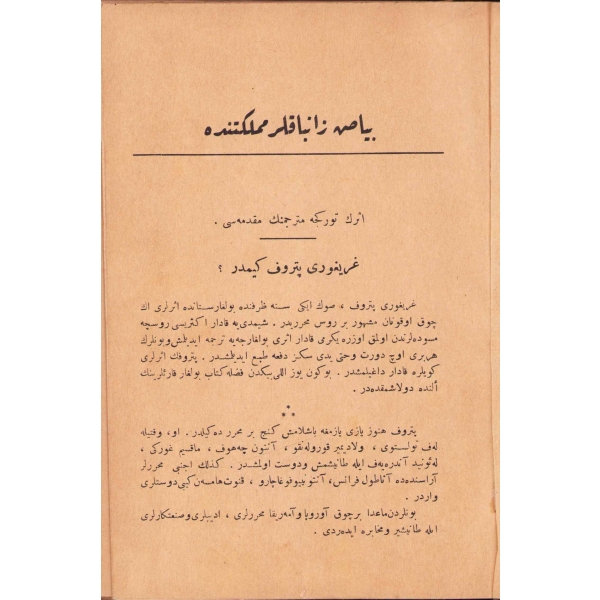 بياض زانباقلر مملكتنده
اثرك توركجه مترجمنك مقدمه‌سى .
غريغورى پتروف كيمدر ؟
غريغورى پتروف ، صوك ايكى سنه ظرفنده بولغارستانده اثرلرى اك
چوق اوقونان مشهور بر روس محرريدر . شيمدى‌يه قادار اكثريسى روسجه
مسوده‌لرندن اولمق اوزره يكرمى قادار اثرى بولغارجه‌يه ترجمه ايديلمش وبونلرك
هربرى اوچ دورت وحتى يدى سكز دفعه طبع ايديلمشدر . پتروفك اثرلرى
كويلره قادار داغيلمشدر . بوكون يوز اللى بيكدن فضله كتاب بولغار قارئلرينك
ألنده دولاشمقده‌در .
⁂
پتروف هنوز يازى يازمغه باشلامش كنج بر محرر ده كيلدر . او ، وقتيله
لەف تولستوى ، ولاديمير قورولەنقو ، آنتون چەهوف ، ماقسيم غوركى ،
لەئونيد آندرەيەف ايله طانيشمش ودوست اولمشدر . كذلك اجنبى محررلر
آراسنده‌ده آناطول فرانس ، آنتونيوفوغاچارو ، قنوت هامسەن كبى دوستلرى
واردر .
بونلردن ماعدا برچوق آوروپا وآمەريقا محررلرى ، اديبلرى وصنعتكارلرى
ايله طانيشير ومخابره ايده‌ردى .